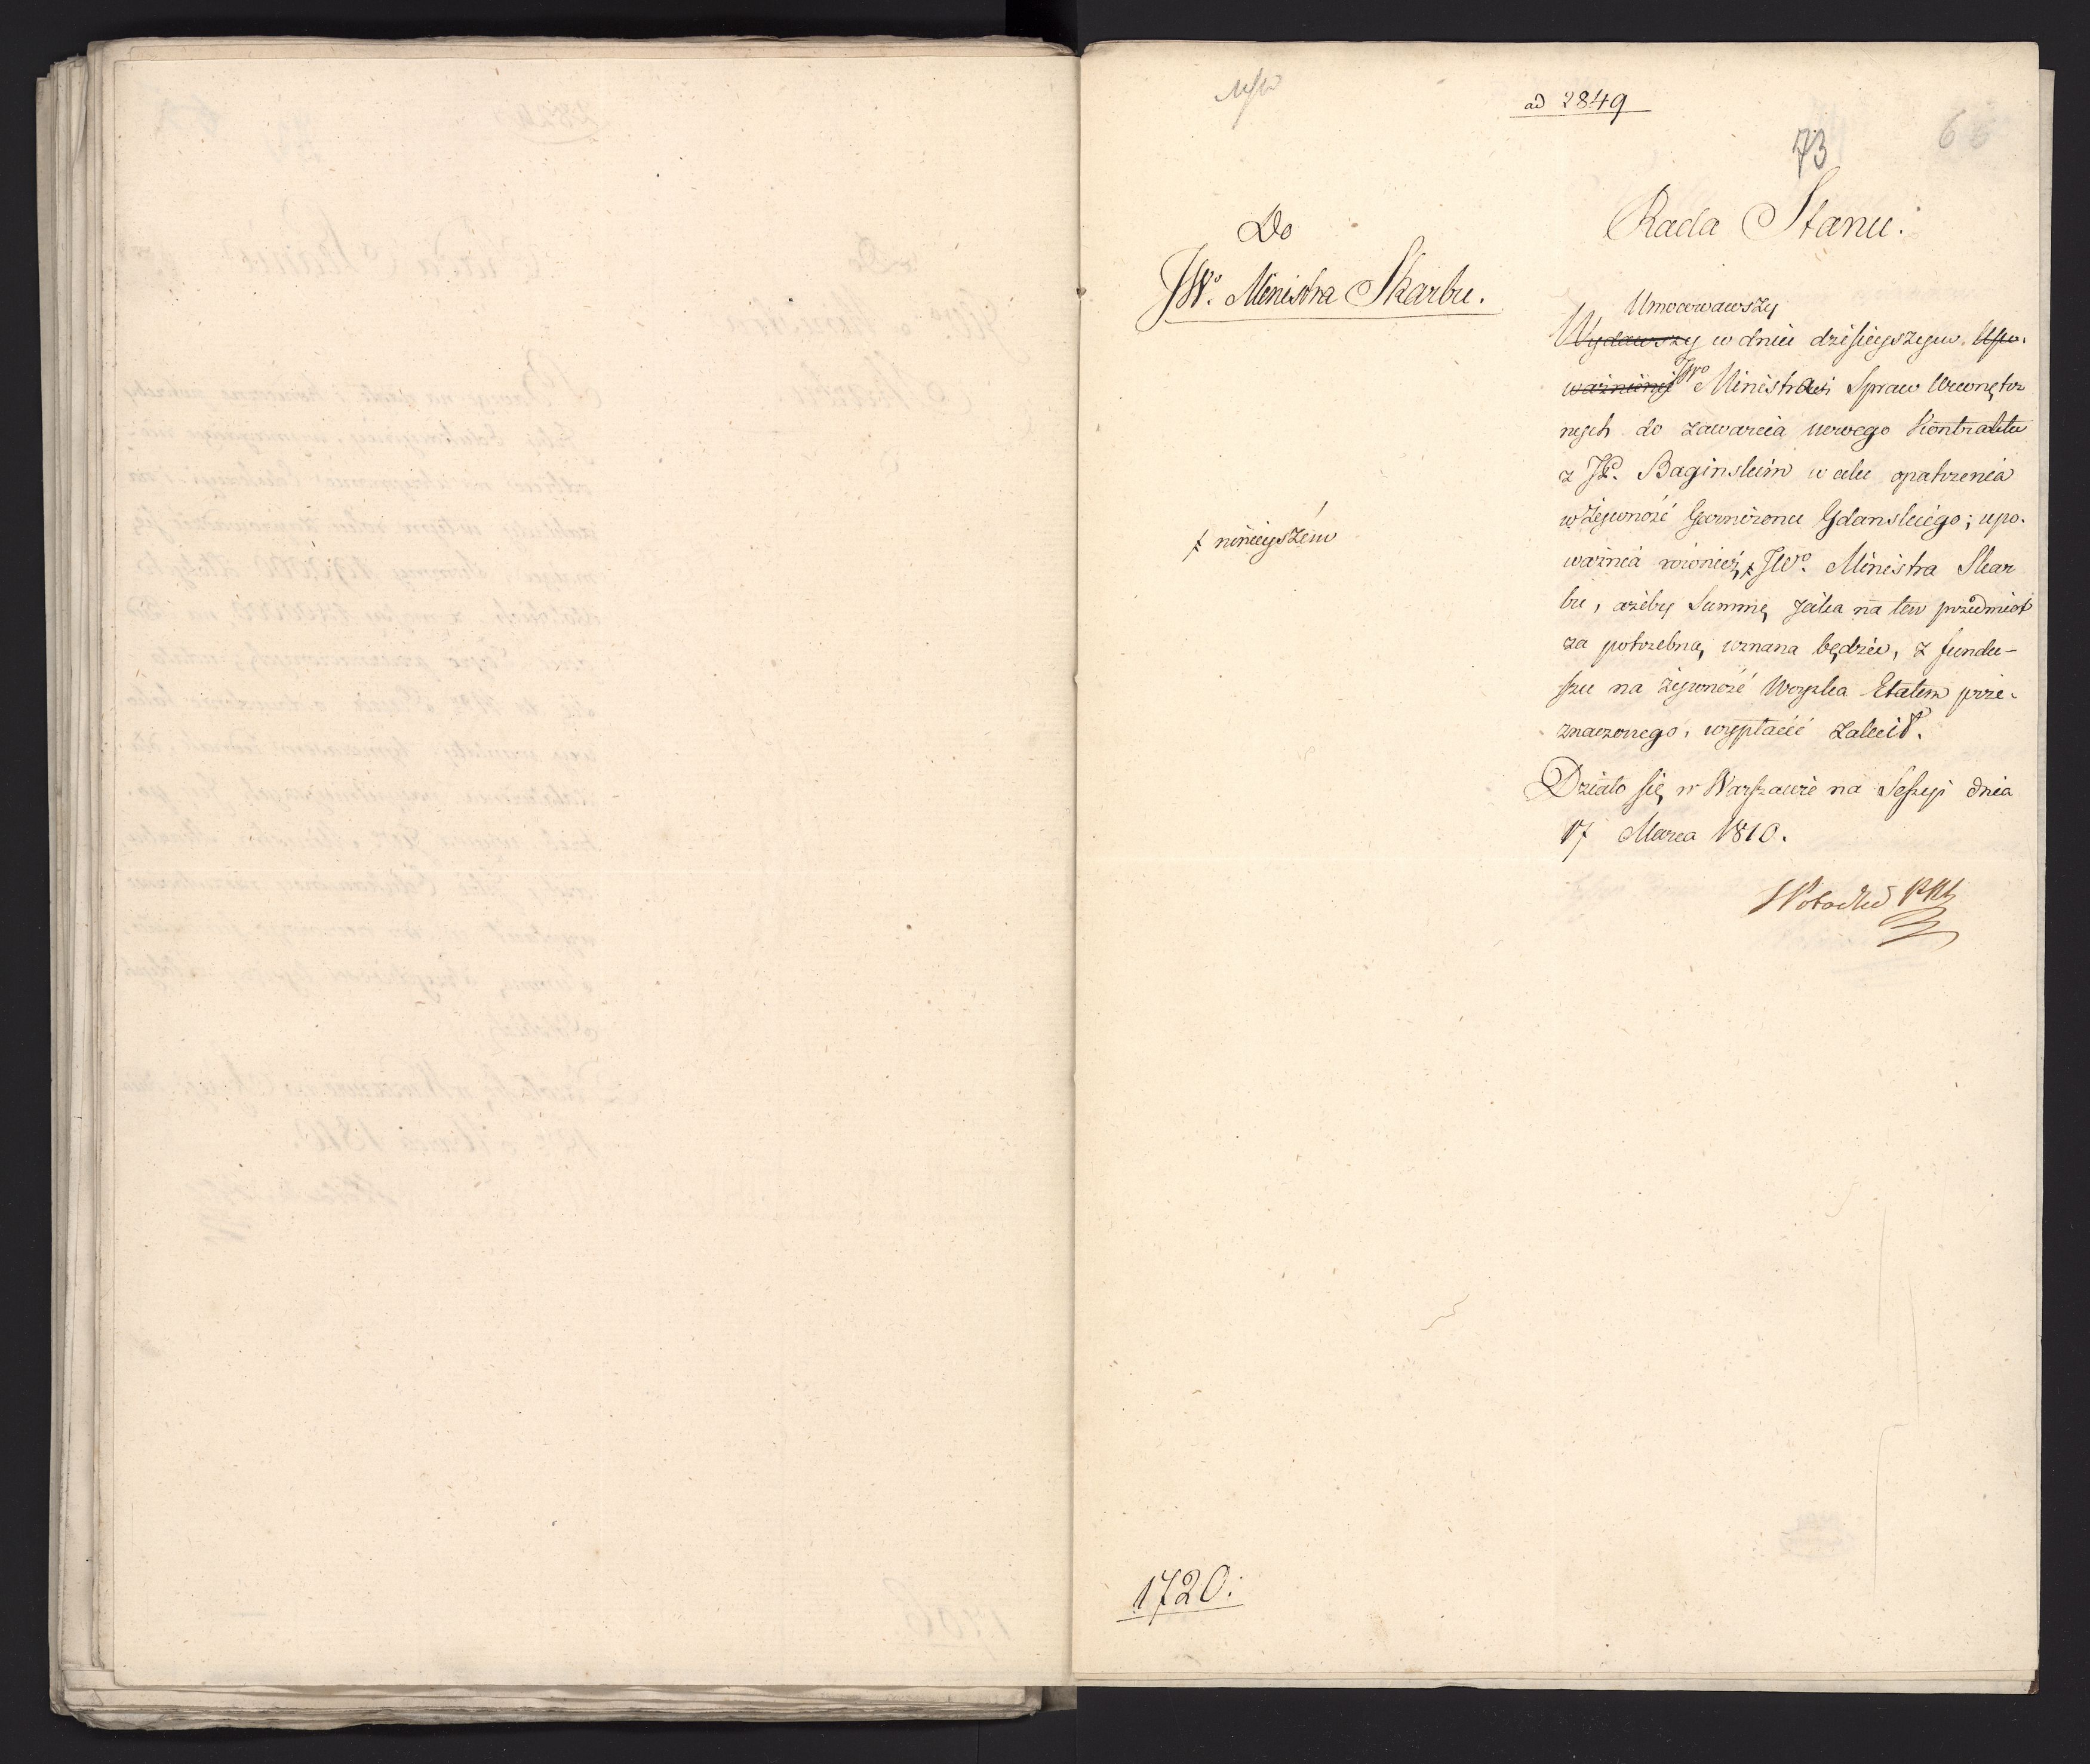 ad 2849
73
Do
JWº. Ministra Skarbu.
Rada Stanu.
Umocowawszy
Wydawszy w dniu dzisieyszym Upo-
ważnienie JWº Ministrawi Spraw Wewnętrz
nych do zawarcia nowego Kontraktu
z JP. Baginskim w celu opatrzenia
w żywność Garnizonu Gdanskiego; upo-
ważnia również ⨍ JWº. Ministra Skar
bu, ażeby Summę jaka na ten przedmiot
za potrzebną uznana będzie, z fundu-
szu na żywność Woyska Etatem prze-
znaczonego, wypłacić zalecił.
⨍ ninieyszém
Działo się w Warszawie na Sessyi dnia
17 Marca 1810.
1720.